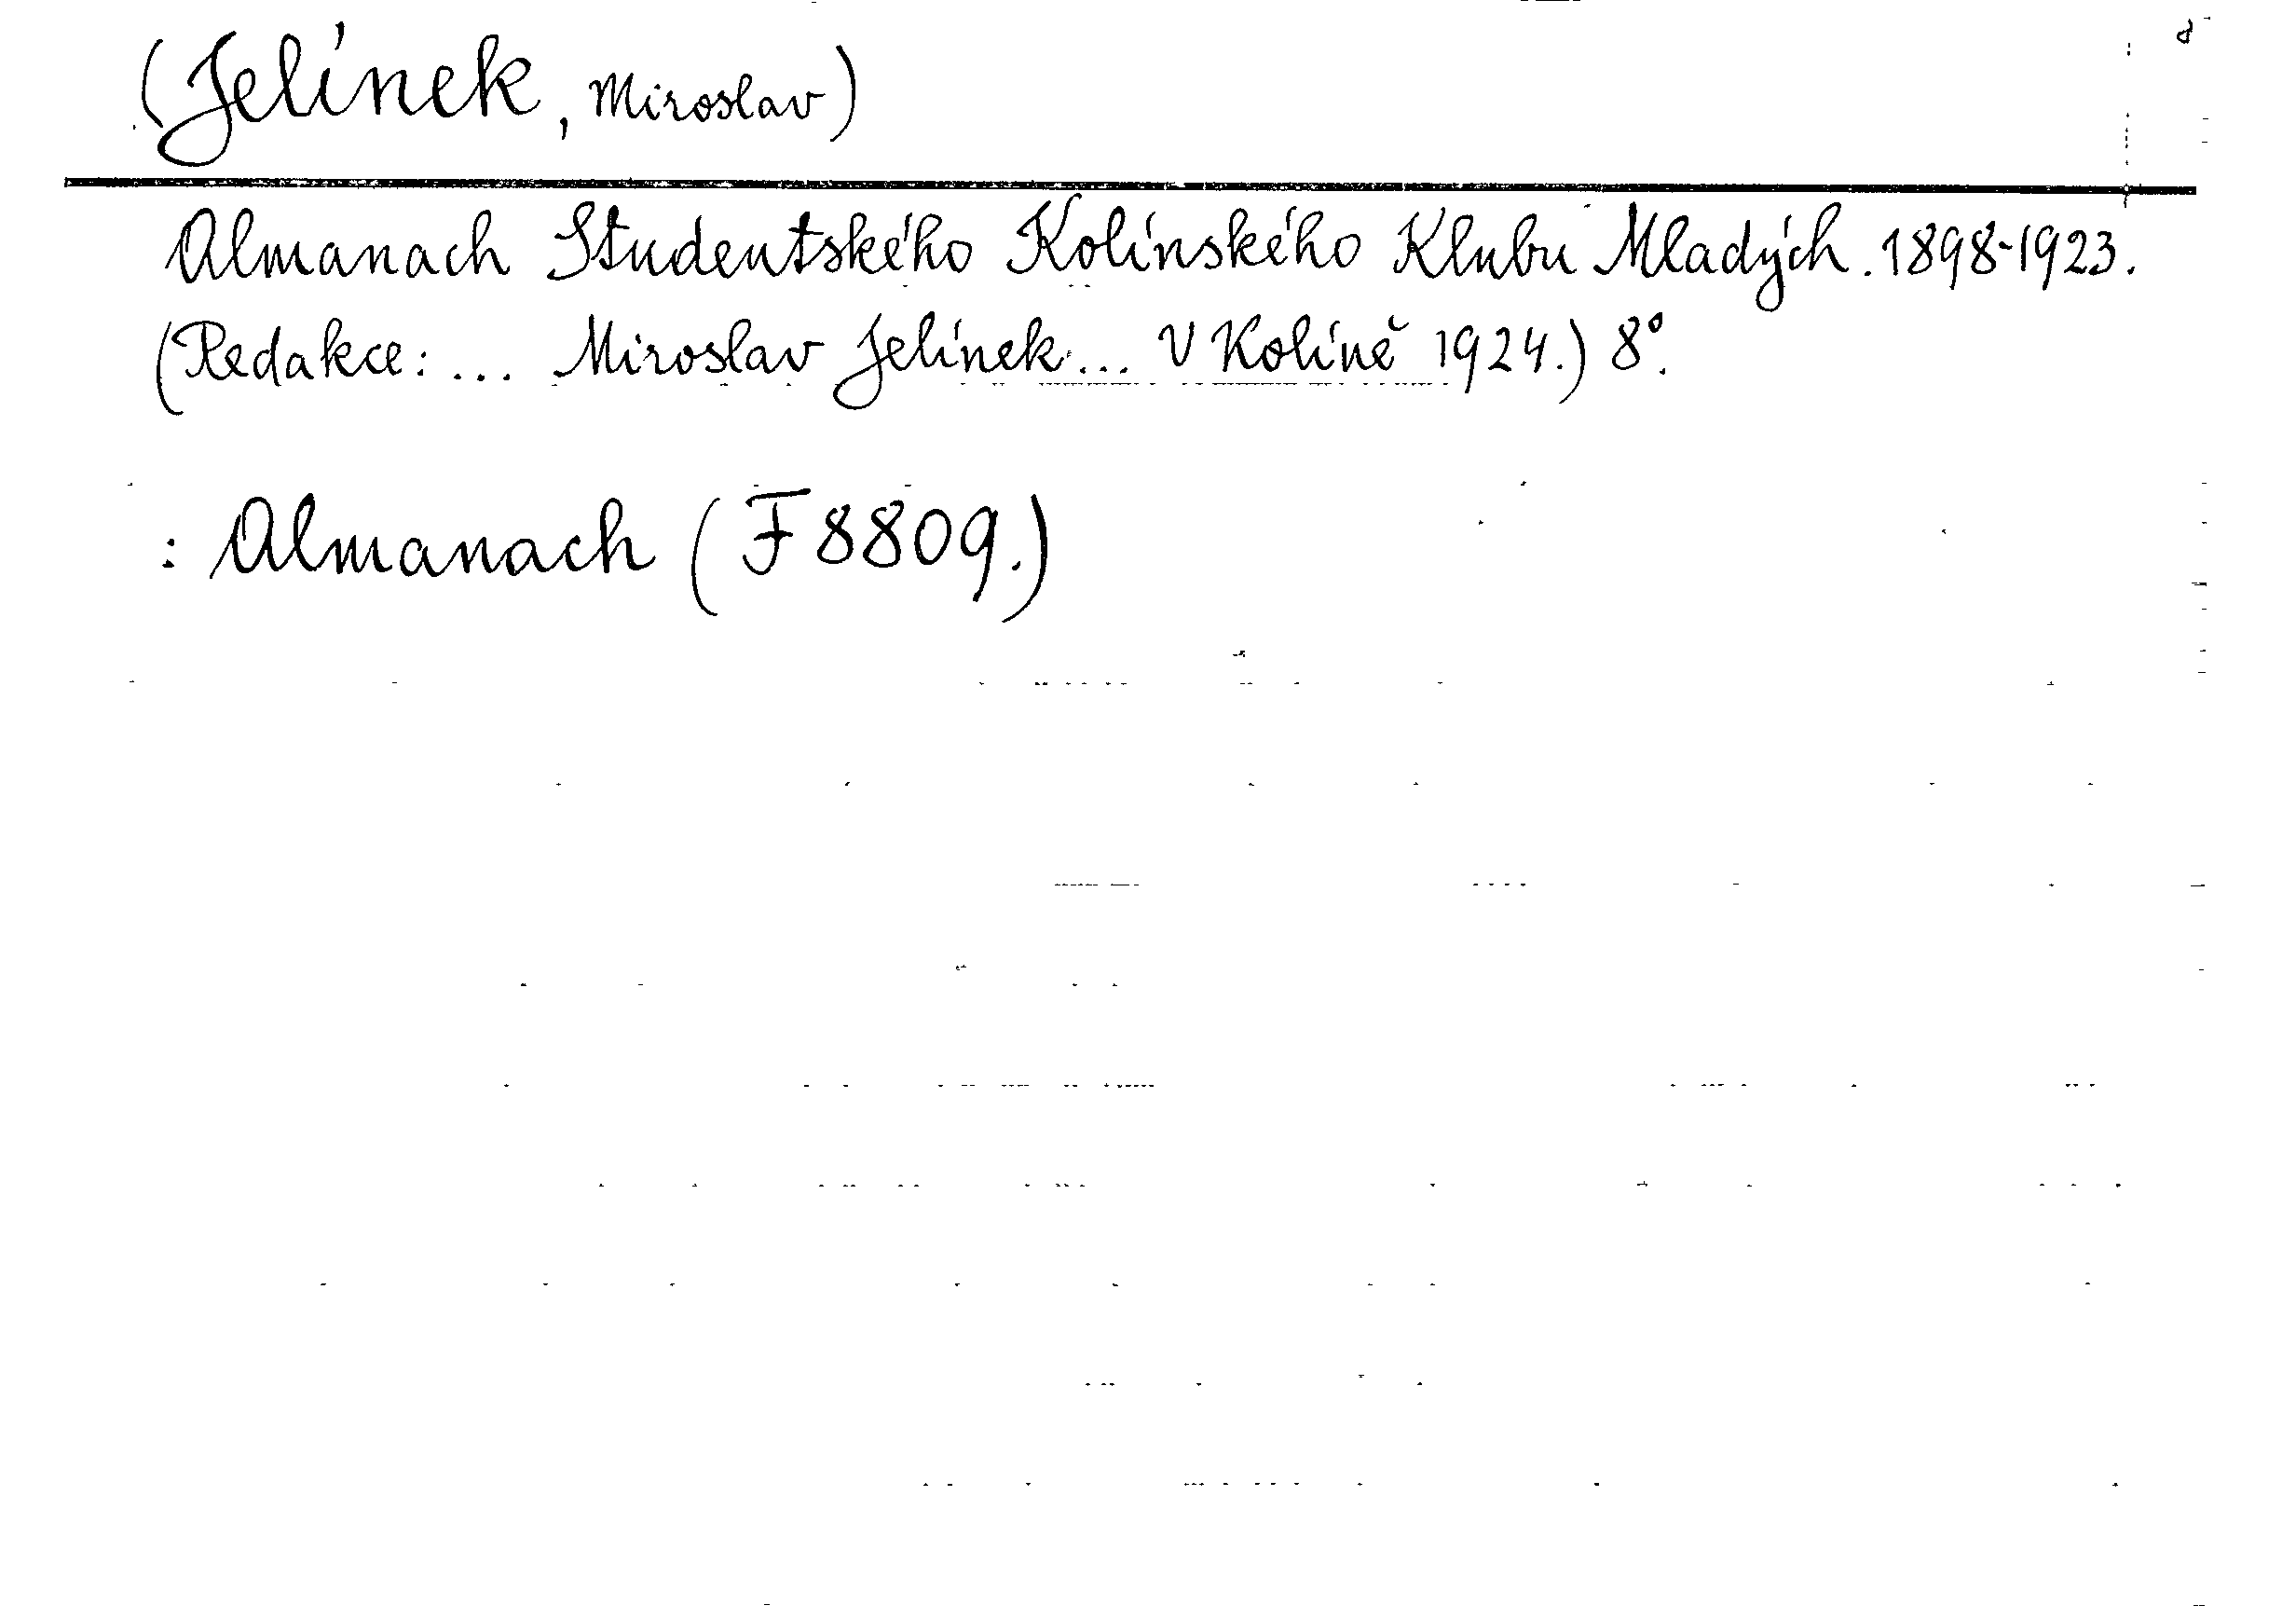 (Jelínek, Miroslav)
Almanach Studentského Kolínského Klubu Mladých. 1898-1923.
(Redakce: ... Miroslav Jelínek ... V Kolíně 1924.) 8°.
: Almanach (F 8809.)